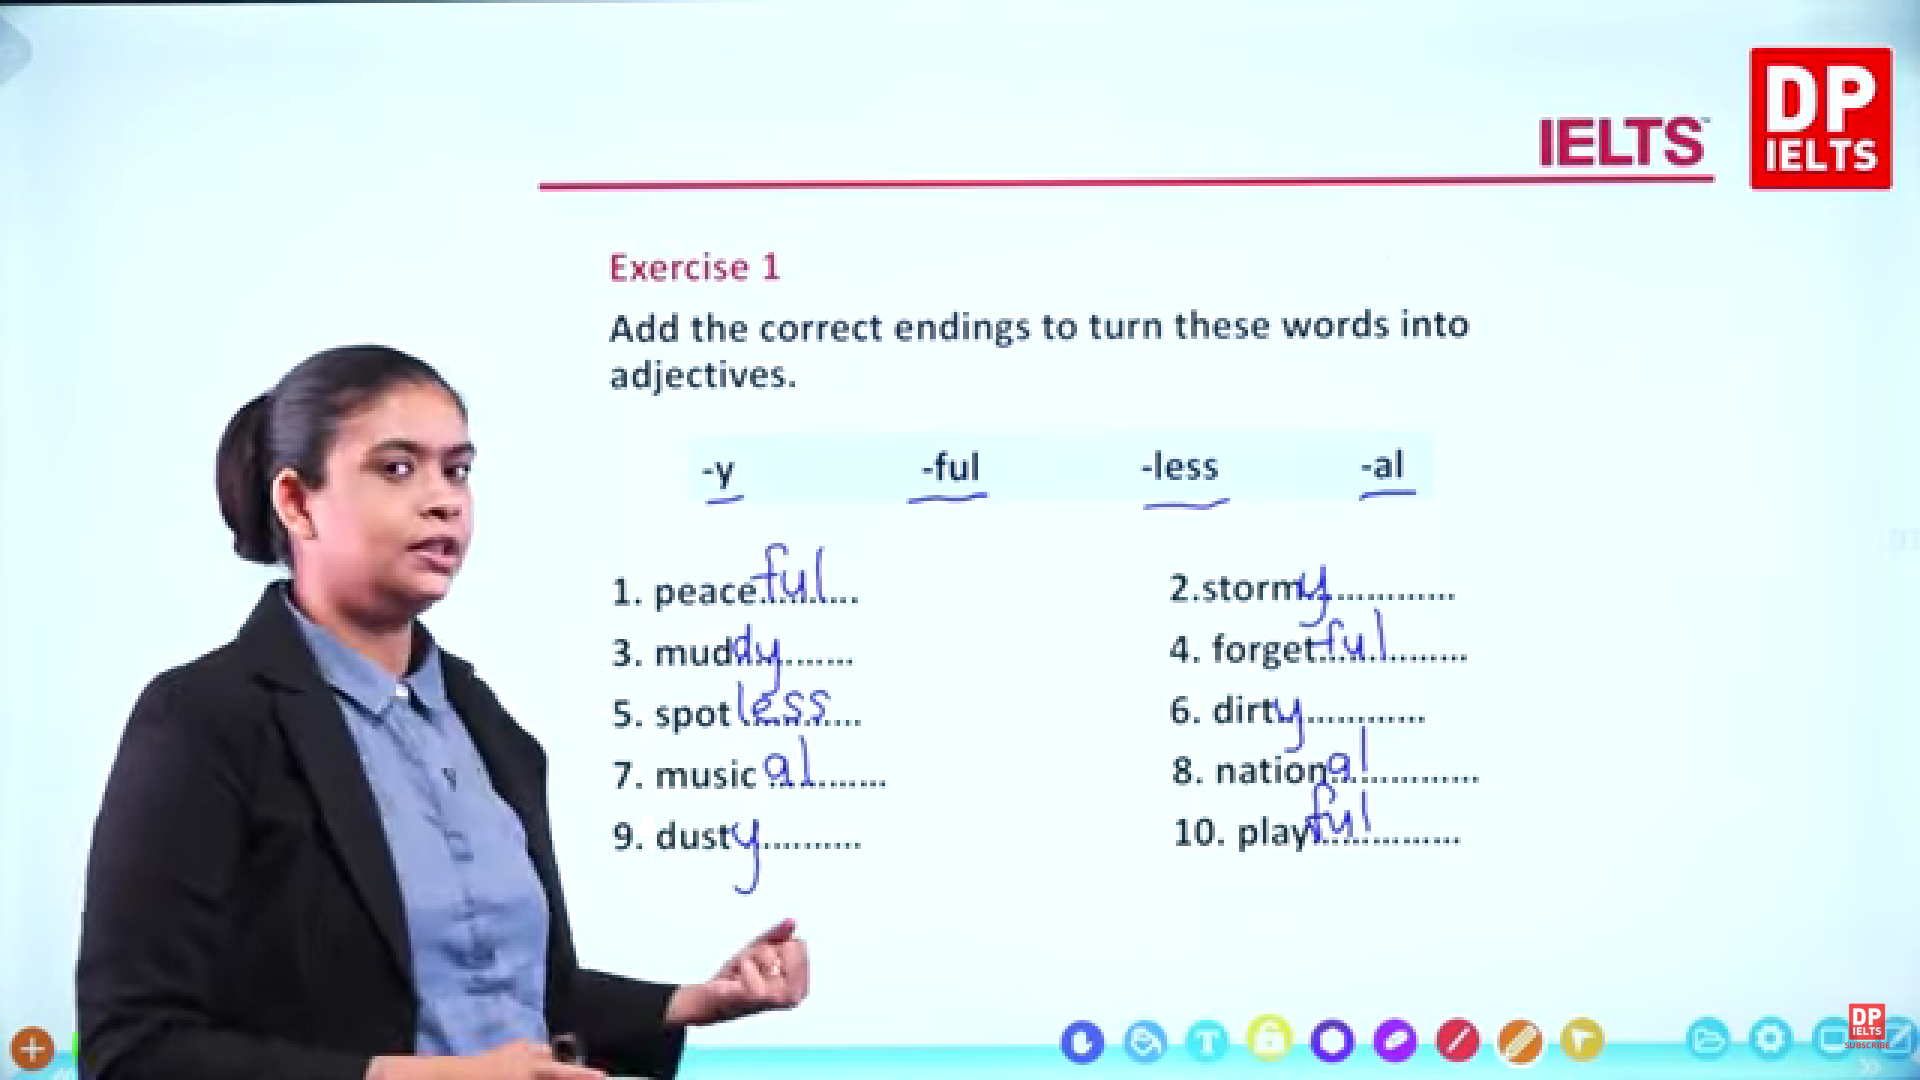 DP
IELTS
IELTS
Exercise 1
Add the correct endings to turn these words into
adjectives.
-y -ful -less -al
1. peaceful.......... 2.stormy............
3. muddy....... 4. forgetful..........
5. spotless.......... 6. dirty............
7. musical........ 8. national............
9. dusty.......... 10. playful............
T
DP
IELTS
SUBSCRIBE